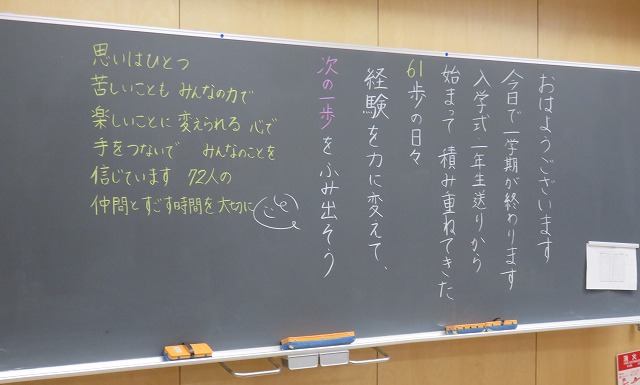 おはようございます
今日で一学期が終わります
入学式 一年生送りから
始まって 積み重ねてきた
61歩の日々
経験を力に変えて、
次の一歩をふみ出そう
思いはひとつ
苦しいことも みんなの力で
楽しいことに 変えられる 心で
手をつないで みんなのことを
信じています 72人の
仲間とすごす時間を大切に